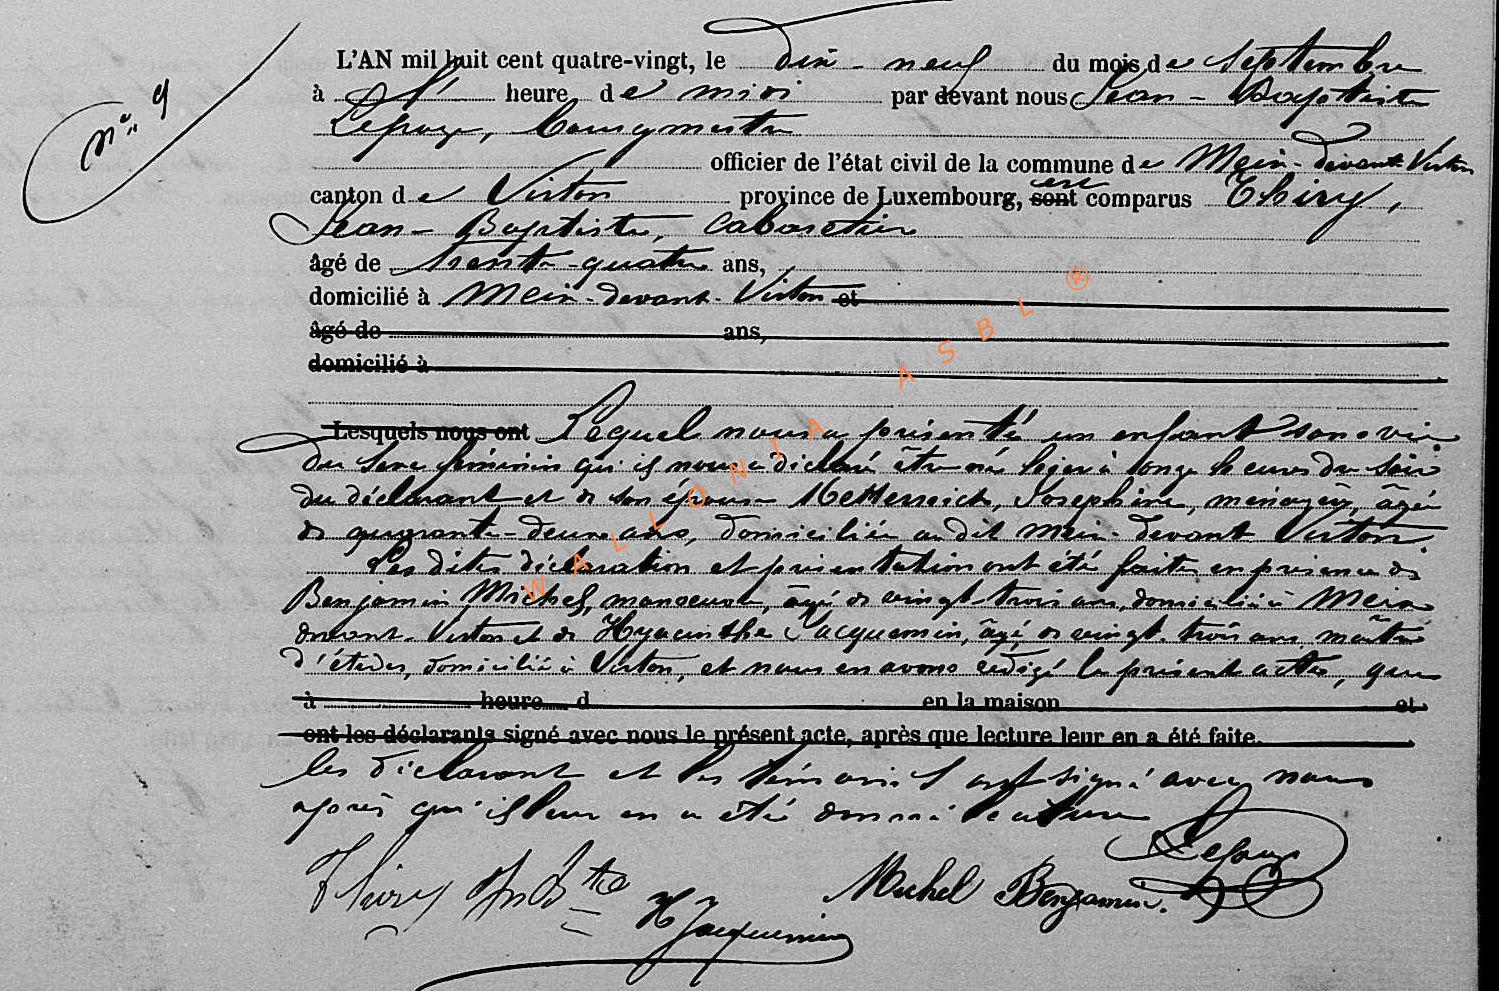 N° 9
L'AN mil huit cent quatre-vingt, le dix-neuf du mois de Septembre
à heure de midi par devant nous Jean-Baptiste
Lepage, bourgmestre
officier de l'état civil de la commune de Meix-devant-Virton
canton de Virton province de Luxembourg, sont est comparus Thiry,
Jean-Baptiste, cabaretier
âgé de trente-quatre ans,
domicilié à Meix-devant-Virton et
âgé de ans,
domicilié à
Lesquels nous ont Lequel nous a présenté un enfant sans vie
du sexe féminin qu'il nous a déclaré être né hier à onze heures du soir
du déclarant et de son épouse Metterreich, Josephine, ménagère, âgée
de quarante-deux ans, domiciliée au dit Meix-devant-Virton.
Les dites déclaration et présentation ont été faites en présence de
Benjamin Michel, manoeuvre, âgé de vingt-trois ans, domicilié à Meix
devant-Virton et de Hyacinthe Jacquemin, âgé de vingt-trois ans, maître
d'études, domicilié à Virton, et nous en avons rédigé le présent acte, que
à heure d en la maison et
ont les déclarants signé avec nous le présent acte, après que lecture leur en a été faite.
les déclarant et les témoins ont signé avec nous
après qu'il leur en a été donné lecture
Lepage
Thiry Jn Bte Michel Benjamin.
H Jacquemin
WALLONIA ASBL ®